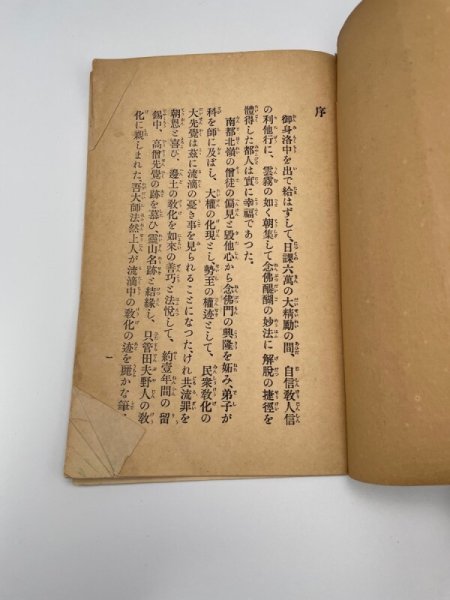 序
御身洛中を出で給はずして、日課六萬の大精勵の間、自信敎人信
の利他行に、雲霧の如く朝集して念佛醍醐の妙法に 解脱の捷徑を
體得した都人は實に幸福であつた。
南都北嶺の僧徒の偏見と毀他心から念佛門の興隆を妬み、弟子が
科を師に及ぼし、大權の化現とし、勢至の權迹として、民衆敎化の
大先覺は茲に流謫の憂き事を見られることになつた、けれ共流罪を
朝恩と喜び、邊土の敎化を如來の善巧と法悅して、約壹年間の留
錫中、高僧先覺の跡を慕ひ、靈山名跡と結緣し、只管田夫野人の敎
化に親しまれた、吾大師法然上人が流謫中の敎化の迹を
かな筆
一